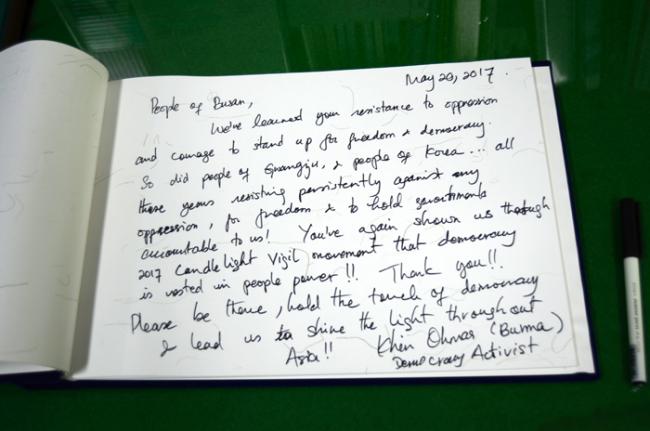 May 20, 2017.
People of Busan,
We've learned your resistance to oppression
and courage to stand up for freedom & democracy.
So did people of Gwangju, & people of Korea... all
these years resisting persistently against any
oppression, for freedom & to hold governments
accountable to us! You've again shown us through
2017 Candle Light Vigil movement that democracy
is vested in people power!! Thank you!!
Please be there, hold the touch of democracy
& lead us to shine the light throughout
Asia!! Khin Ohmar (Burma)
Democracy Activist